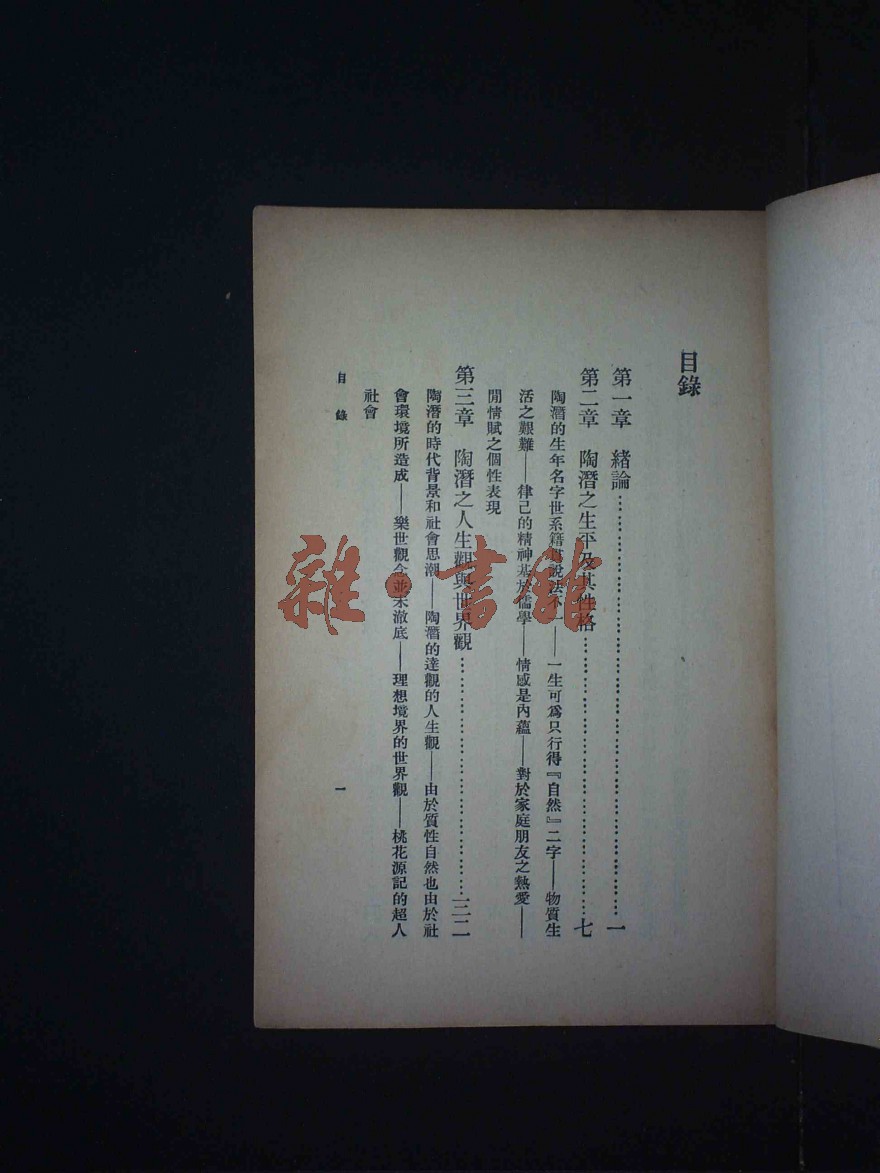 目錄
第一章　緒論……一
第二章　陶潛之生平及其性格……七
陶潛的生年名字世系籍貫說法不一——一生可爲只行得『自然』二字——物質生
活之艱難——律己的精神基於儒學——情感是內蘊——對於家庭朋友之熱愛——
閒情賦之個性表現
第三章　陶潛之人生觀與世界觀……二二
陶潛的時代背景和社會思潮——陶潛的達觀的人生觀——由於質性自然也由於社
會環境所造成——樂世觀念並未澈底——理想境界的世界觀——桃花源記的超人
社會
目錄
一
雜·書館